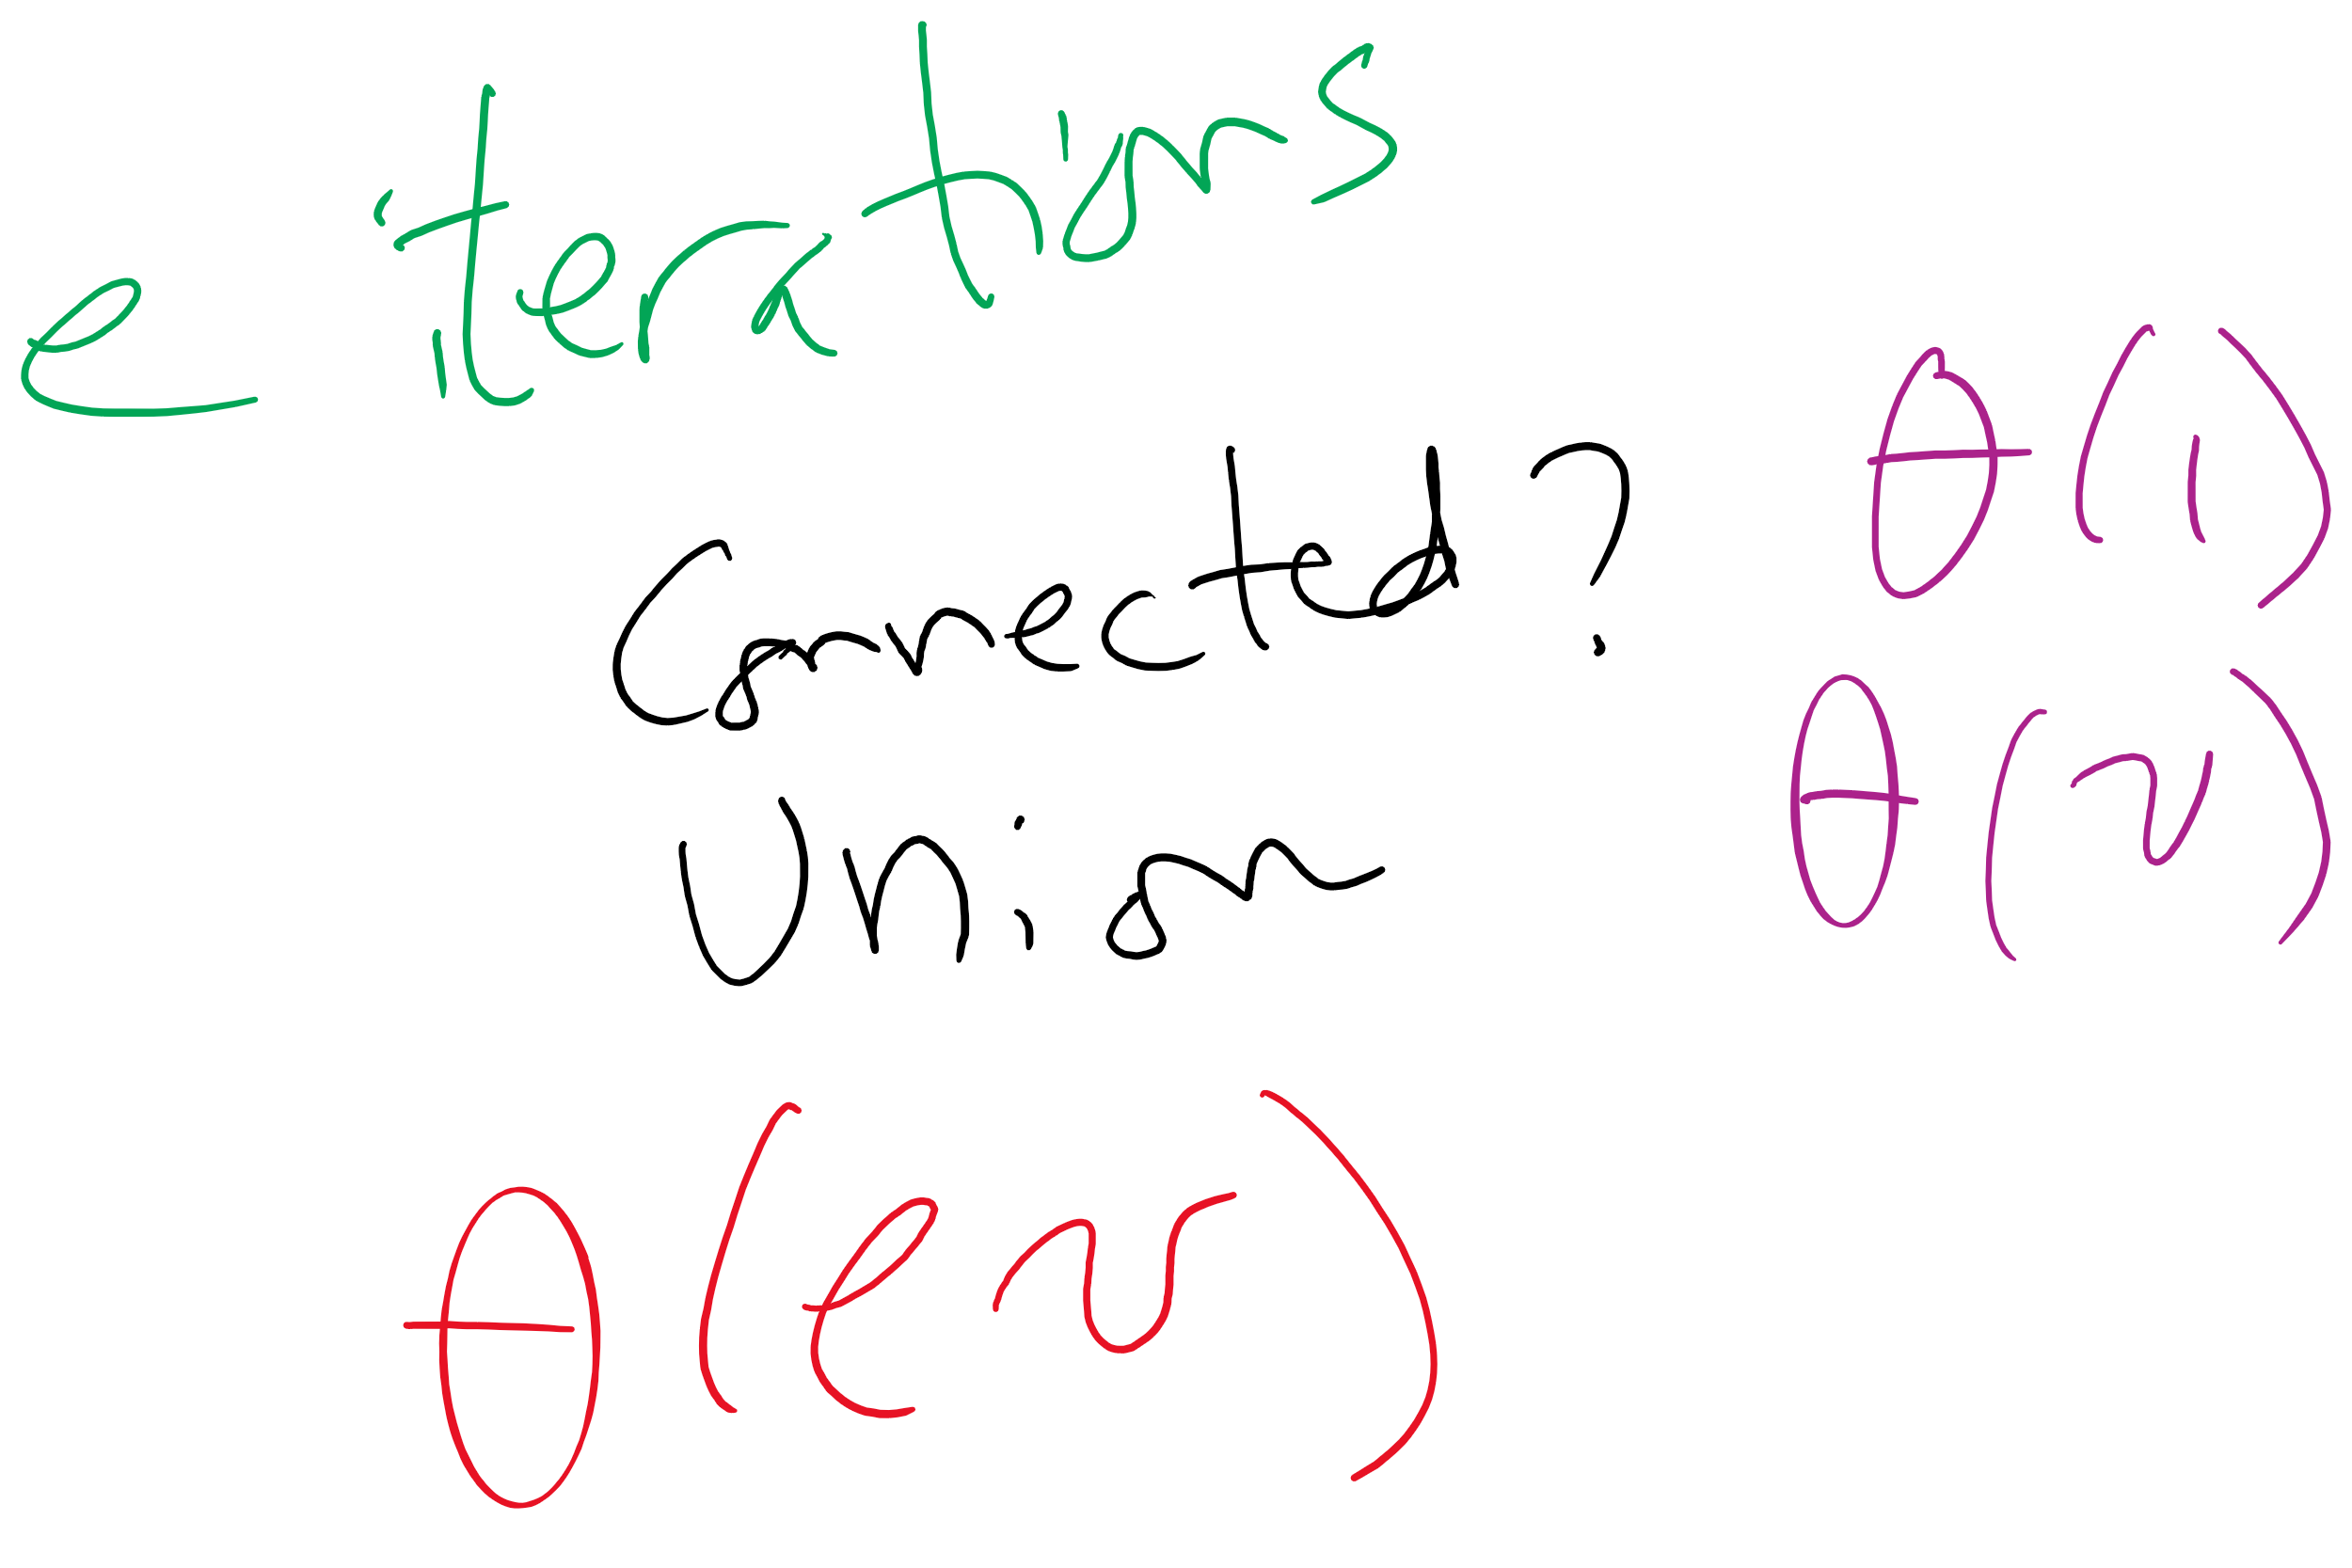 e iterations
Connected? θ(1)
Union θ(v)
θ(ev)